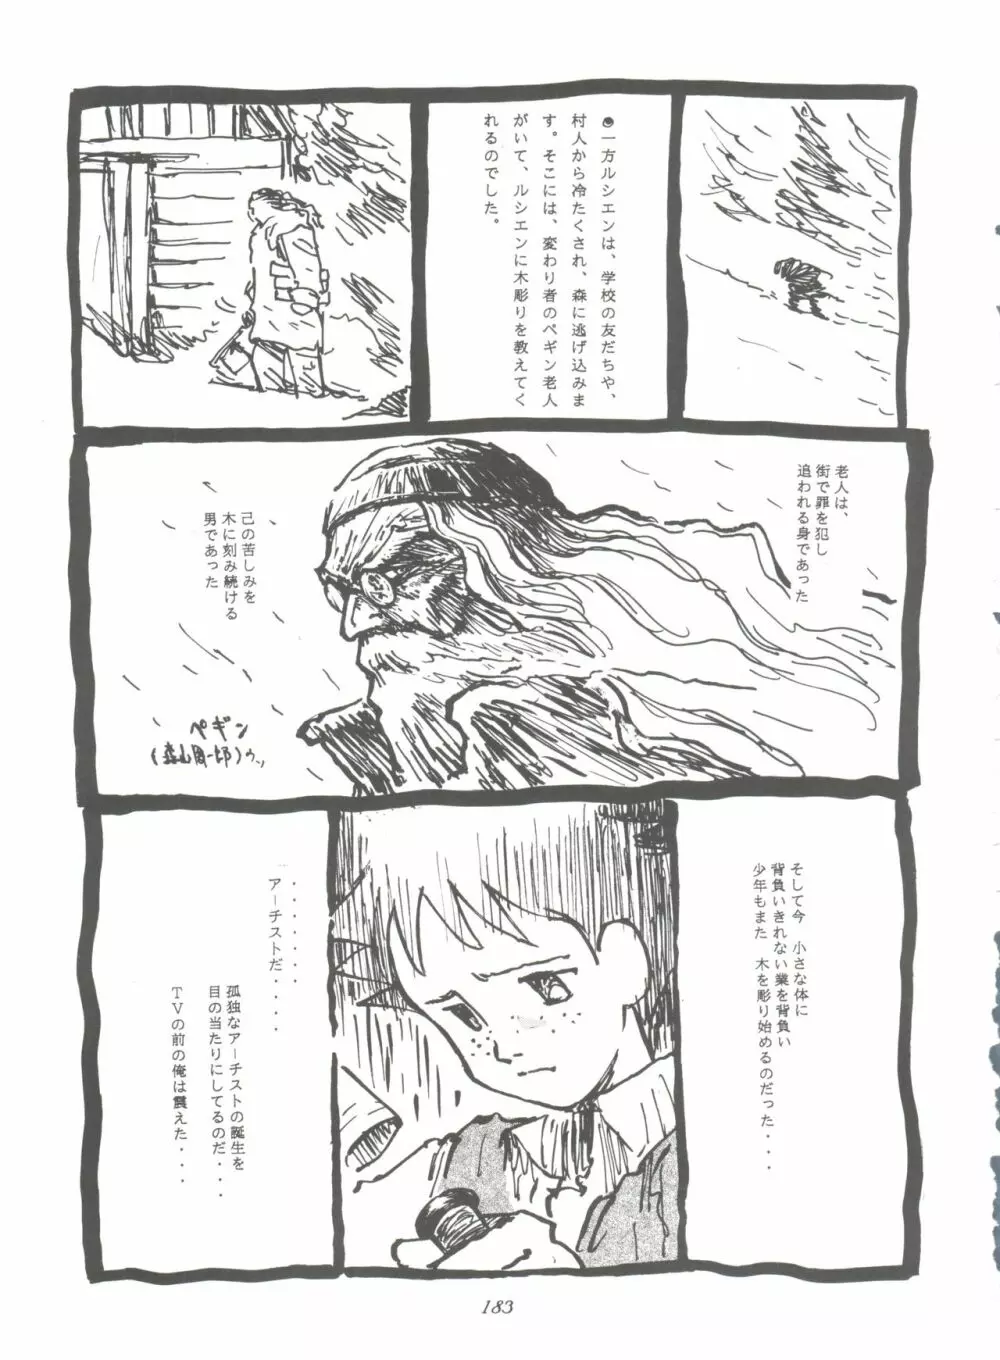 ●一方ルシエンは、学校の友だちや、
村人から冷たくされ、森に逃げ込みま
す。そこには、変わり者のペギン老人
がいて、ルシエンに木彫りを教えてく
れるのでした。
老人は、
街で罪を犯し
追われる身であった
己の苦しみを
木に刻み続ける
男であった
ペギン
(森山周一郎)
そして今 小さな体に
背負いきれない業を背負い
少年もまた 木を彫り始めるのだった・・・
・・・・・・・
アーチストだ・・・・
孤独なアーチストの誕生を
目の当たりにしてるのだ・・・・
TVの前の俺は震えた・・・・
183